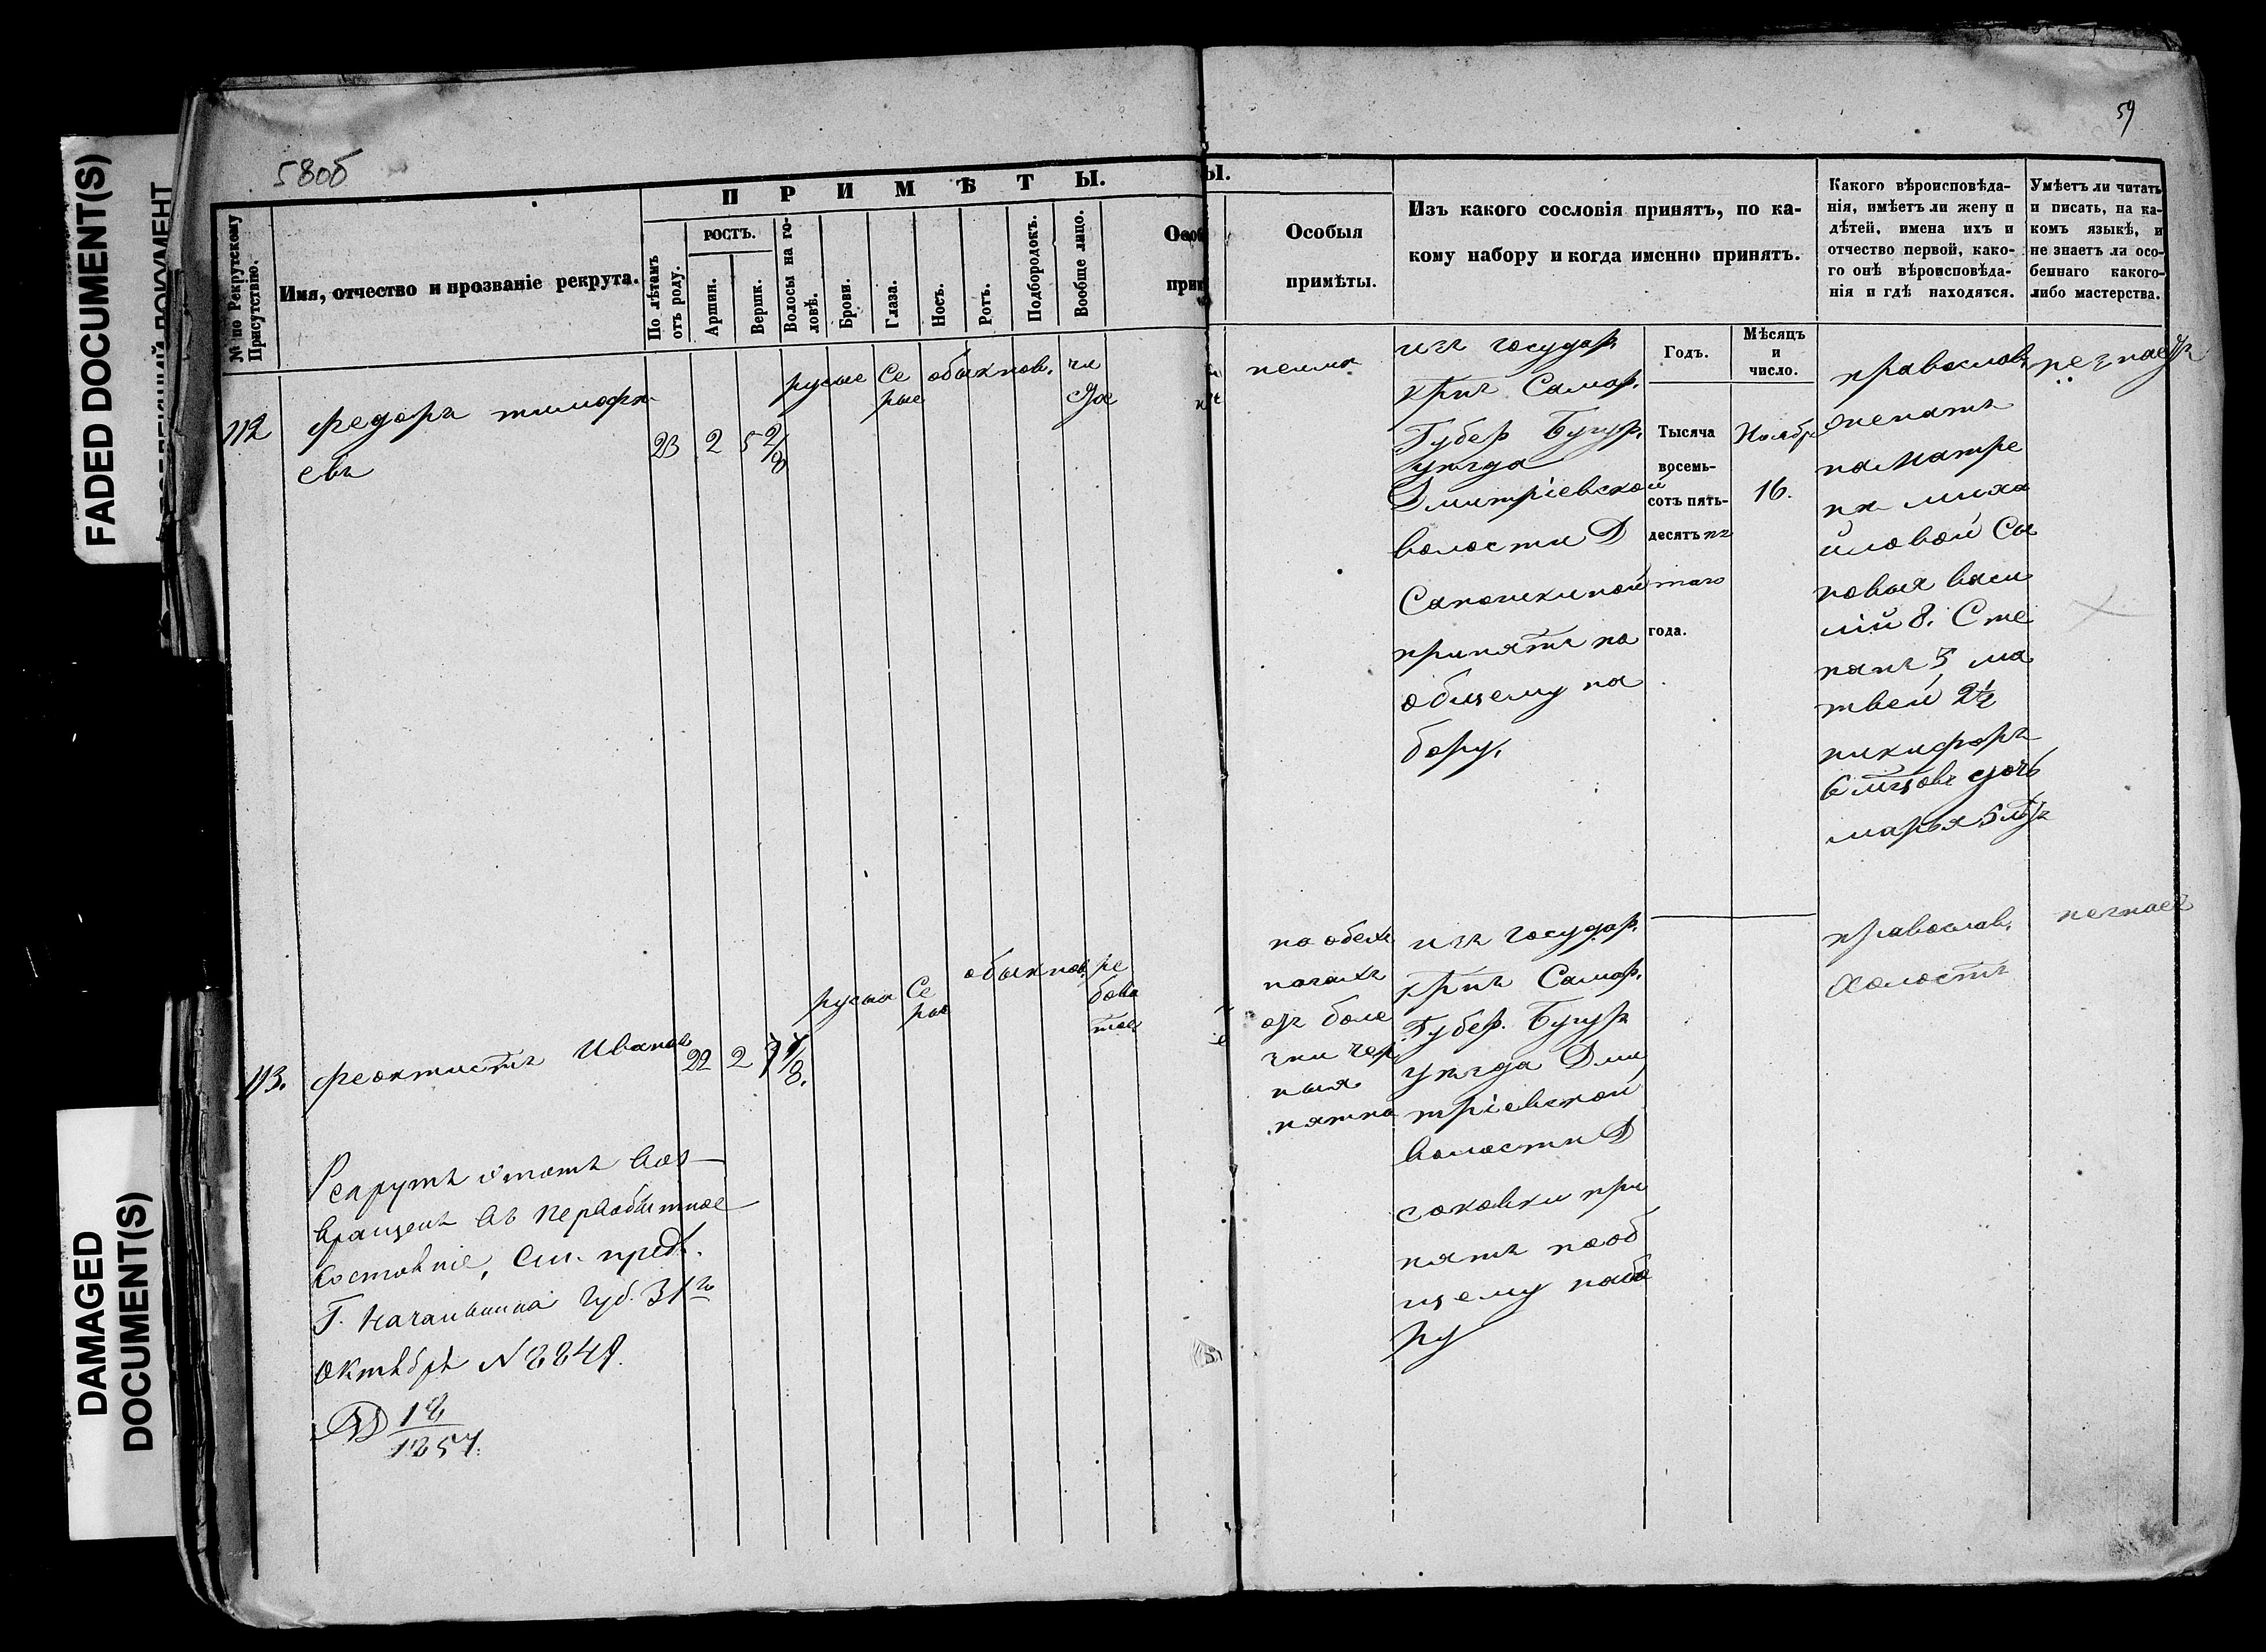 FADED DOCUMENT(S)
DAMAGED
DOCUMENT(S)
580б
59
ПРИМѢТЫ.
№ по Рекрутскому Присутствію.
Имя, отчество и прозваніе рекрута.
По лѣтамъ отъ роду.
РОСТЪ.
Аршин.
Вершк.
Волосы на головѣ.
Брови.
Глаза.
Носъ.
Ротъ.
Подбородокъ.
Вообще лицо.
Ы.
Особыя
примѣты.
Изъ какого сословія принятъ, по ка-
кому набору и когда именно принятъ.
Какого вѣроисповѣда-
нія, имѣетъ ли жену и
дѣтей, имена ихъ и
отчество первой, како-
го онѣ вѣроисповѣда-
нія и гдѣ находятся.
Умѣетъ ли читать
и писать, на ка-
комъ языкѣ, и
не знаетъ ли осо-
беннаго какого-
либо мастерства.
Годъ.
Мѣсяцъ
и
число.
112
федоръ тимофѣ
евъ
23
2
5 2/8
русые
Се
рые
обыкнов.
чи
стое
неима
изъ государ.
крѣс Самар.
Губер Бугур.
уѣзда
Дмитріевской
волости Д
Сапошкиной
принятъ по
общему на
бору.
Тысяча
восемь-
сотъ пять-
десятъ пя
таго
года.
Ноябр
16.
православ.
женатъ
на Матре
нѣ миха
йловой Сы
новья васи
лій 8. Сте
панъ 5, ма
твей 2½
никифоръ
6 мѣсяцовъ дочь
марья 5 лѣтъ
незнаетъ
113.
феоктистъ Ивановъ
22
2
русыя
Се
рые
обыкнов.
ре
бова
тое
на обеихъ
ногахъ
отъ боле
зни чер
ныя
пятна
изъ государ.
крѣс Самар.
Губер. Бугур
уѣзда Дми
тріевской
волости Д
соковки при
нятъ пооб
щему набо
ру
православ.
холостъ
незнаетъ
Рекрутъ этотъ воз-
вращенъ въ первобытное
состояніе, см. пред.
Г. Начальника губ. 31го
Октября № 8849.
18
1857.